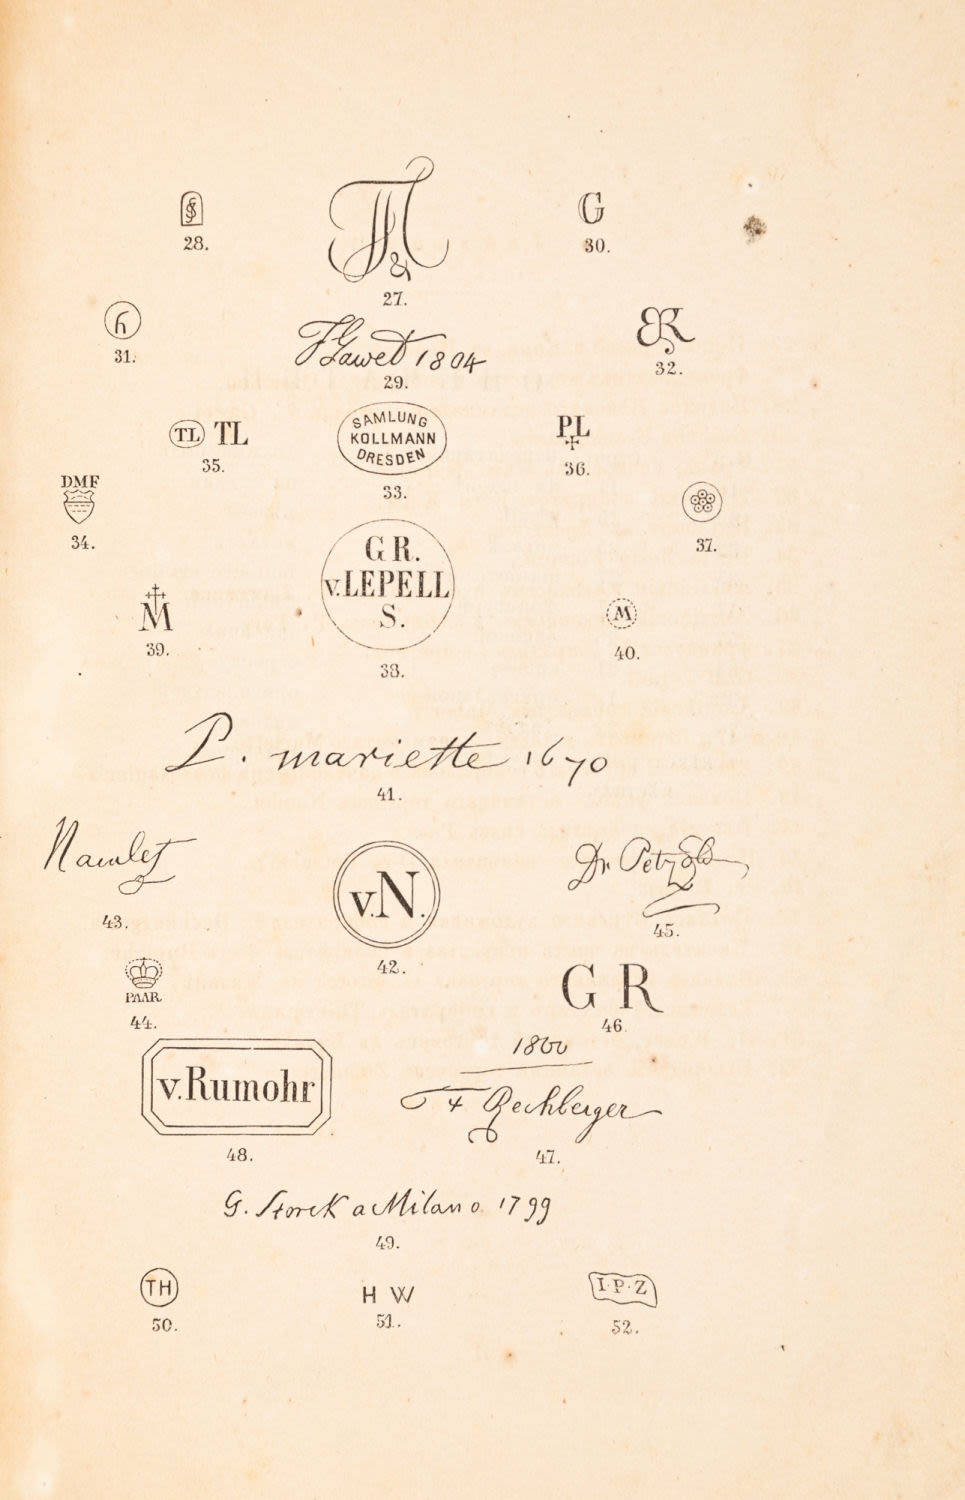 28.
27.
G
30.
31.
1804
29.
32.
TL TL
35.
SAMLUNG
KOLLMANN
DRESDEN
33.
PL
36.
DMF
34.
37.
G R.
v. LEPELL
S.
38.
M
39.
M
40.
P. mariette 1670
41.
43.
v. N.
42.
Dr. Petzold
45.
PAAR.
44.
G R
46.
v. Rumohr
48.
1800
F Rechberger
47.
G. Storck a Milano 1799
49.
TH
50.
H W
51.
I·P·Z
52.